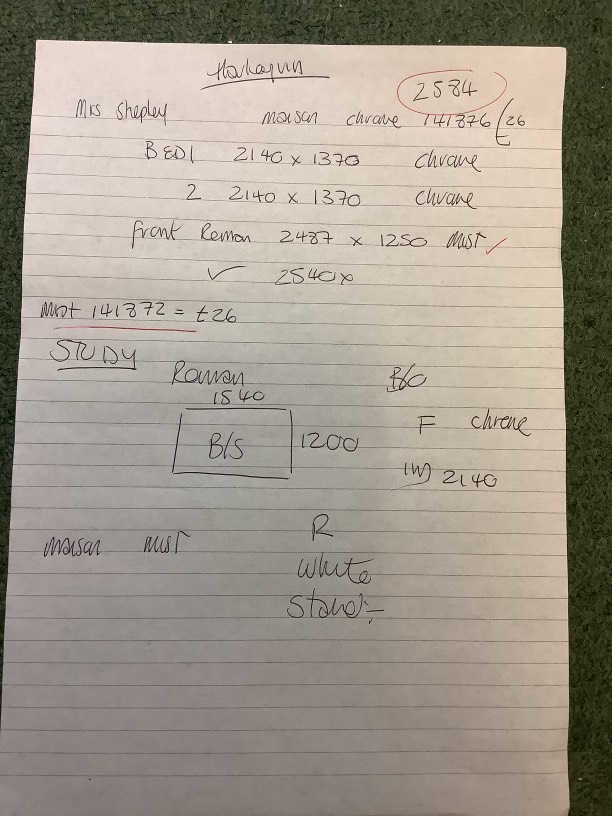 Harlequin
2584
Mrs Shepley maison chrome 141876 (£26
BED1 2140 x 1370 chrome
2 2140 x 1370 chrome
front Roman 2487 x 1250 MIST ✓
✓ 2540x
Mist 141872 = £26
STUDY
Roman B/O
1540
B/S 1200 F chrome
(W) 2140
maison MIST R
White
Stand:-